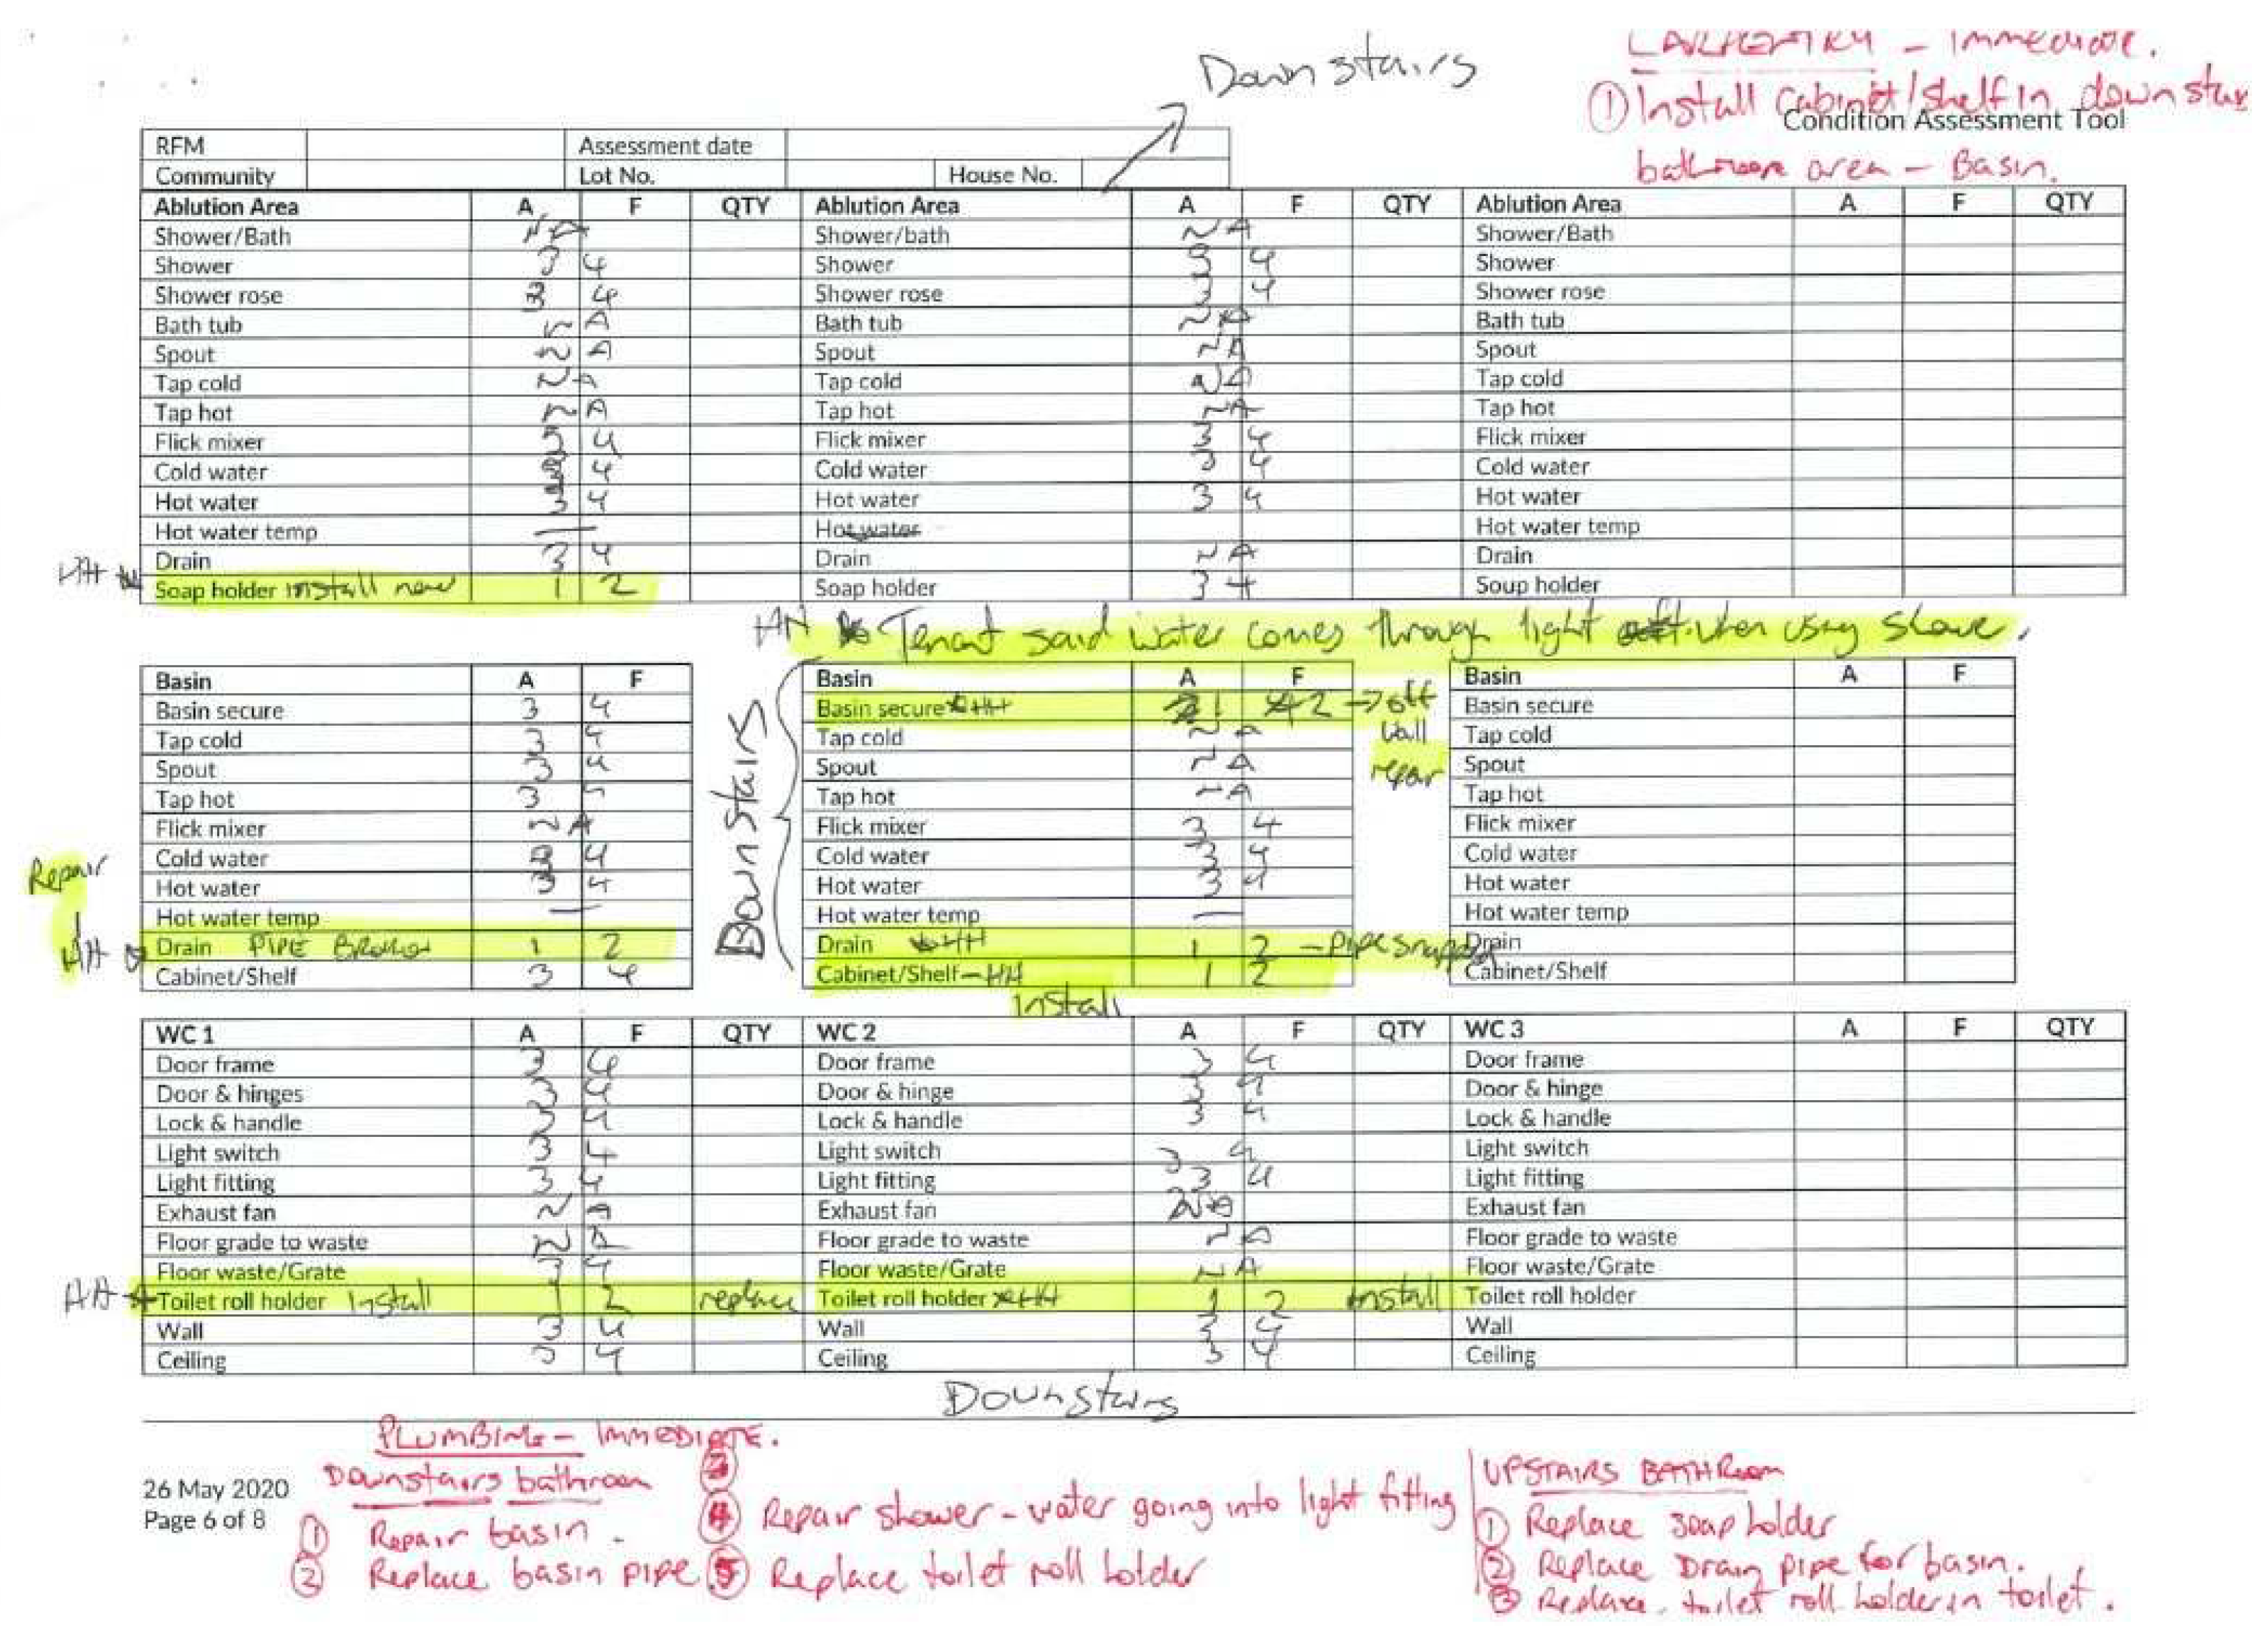 Downstairs
CARPENTRY - Immediate.
① Install Cabinet/shelf in downstairs
Condition Assessment Tool
bathroom area - Basin.
RFM Assessment date
Community Lot No. House No.
Ablution Area A F QTY Ablution Area A F QTY Ablution Area A F QTY
Shower/Bath NA Shower/bath NA Shower/Bath
Shower 3 4 Shower 3 4 Shower
Shower rose 3 4 Shower rose 3 4 Shower rose
Bath tub NA Bath tub NA Bath tub
Spout NA Spout NA Spout
Tap cold NA Tap cold NA Tap cold
Tap hot NA Tap hot NA Tap hot
Flick mixer 3 4 Flick mixer 3 4 Flick mixer
Cold water 3 4 Cold water 3 4 Cold water
Hot water 3 4 Hot water 3 4 Hot water
Hot water temp — Hot water Hot water temp
Drain 3 4 Drain NA Drain
HH Soap holder install new 1 2 Soap holder 3 4 Soup holder
HH Tenant said water comes through light when using shower.
Basin A F Basin A F Basin A F
Basin secure 3 4 Basin secure HH 1 2 → off Basin secure
Tap cold 3 4 Tap cold NA wall Tap cold
Spout 3 4 Spout NA repair Spout
Tap hot 3 Tap hot NA Tap hot
Flick mixer NA Flick mixer 3 4 Flick mixer
Downstairs
Repair
Cold water 3 4 Cold water 3 4 Cold water
Hot water 3 4 Hot water 3 4 Hot water
Hot water temp — Hot water temp — Hot water temp
HH Drain PIPE Broken 1 2 Drain HH 1 2 - Pipe snapped Drain
Cabinet/Shelf 3 4 Cabinet/Shelf - HH 1 2 Cabinet/Shelf
Install
WC 1 A F QTY WC 2 A F QTY WC 3 A F QTY
Door frame 3 4 Door frame 3 4 Door frame
Door & hinges 3 4 Door & hinge 3 4 Door & hinge
Lock & handle 3 4 Lock & handle 3 4 Lock & handle
Light switch 3 4 Light switch 3 4 Light switch
Light fitting 3 4 Light fitting 3 4 Light fitting
Exhaust fan NA Exhaust fan NA Exhaust fan
Floor grade to waste NA Floor grade to waste NA Floor grade to waste
Floor waste/Grate 3 4 Floor waste/Grate NA Floor waste/Grate
HH Toilet roll holder Install 1 2 replace Toilet roll holder HH 1 2 install Toilet roll holder
Wall 3 4 Wall 3 4 Wall
Ceiling 3 4 Ceiling 3 4 Ceiling
Downstairs
26 May 2020
Page 6 of 8
PLUMBING - IMMEDIATE.
Downstairs bathroom
① Repair basin.
② Replace basin pipe.
③
④ Repair shower - water going into light fitting
⑤ Replace toilet roll holder
UPSTAIRS BATHROOM
① Replace soap holder
② Replace Drain pipe for basin.
③ Replace toilet roll holder in toilet.